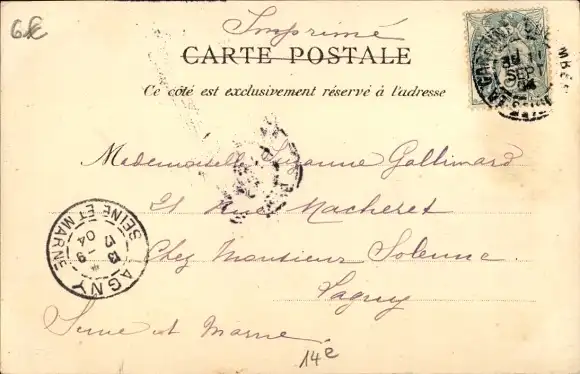 6€
Imprimé
CARTE POSTALE
Ce côté est exclusivement réservé à l'adresse
SEP
04
Mademoiselle Suzanne Gallimard
21 Rue Macheret
Chez Monsieur Solenne
Lagny
Seine et Marne
AGNY
SEINE ET MARNE
13
17 -9
04
14e